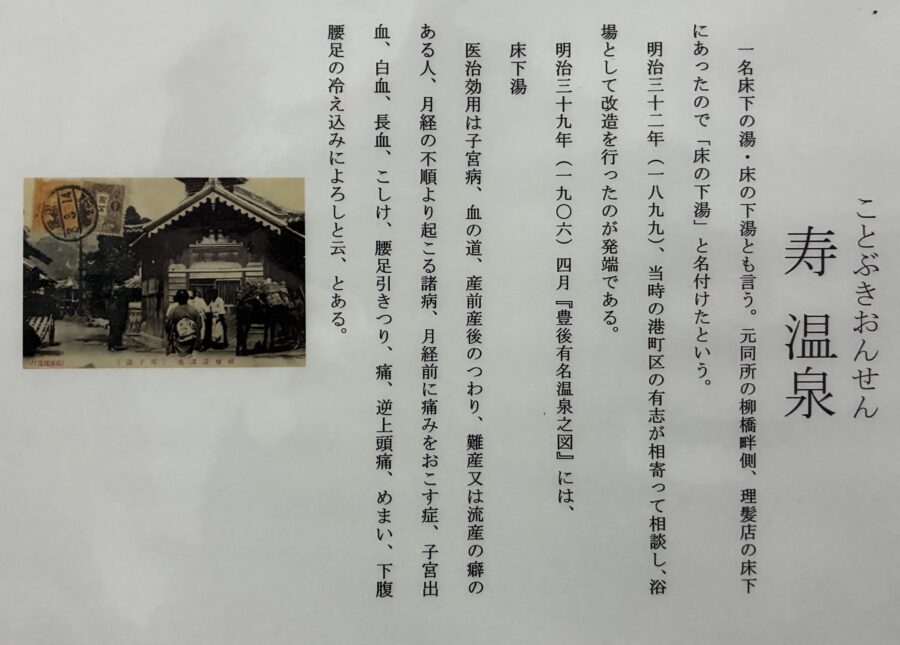 ことぶきおんせん
寿 温泉
一名床下の湯・床の下湯とも言う。元同所の柳橋畔側、理髪店の床下
にあったので「床の下湯」と名付けたという。
明治三十二年(一八九九)、当時の港町区の有志が相寄って相談し、浴
場として改造を行ったのが発端である。
明治三十九年(一九〇六)四月『豊後有名温泉之図』には、
床下湯
医治効用は子宮病、血の道、産前産後のつわり、難産又は流産の癖の
ある人、月経の不順より起こる諸病、月経前に痛みをおこす症、子宮出
血、白血、長血、こしけ、腰足引きつり、痛、逆上頭痛、めまい、下腹
腰足の冷え込みによろしと云、とある。